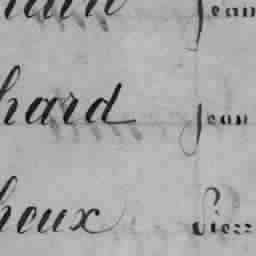 Jean
hard Jean
heux Pierr